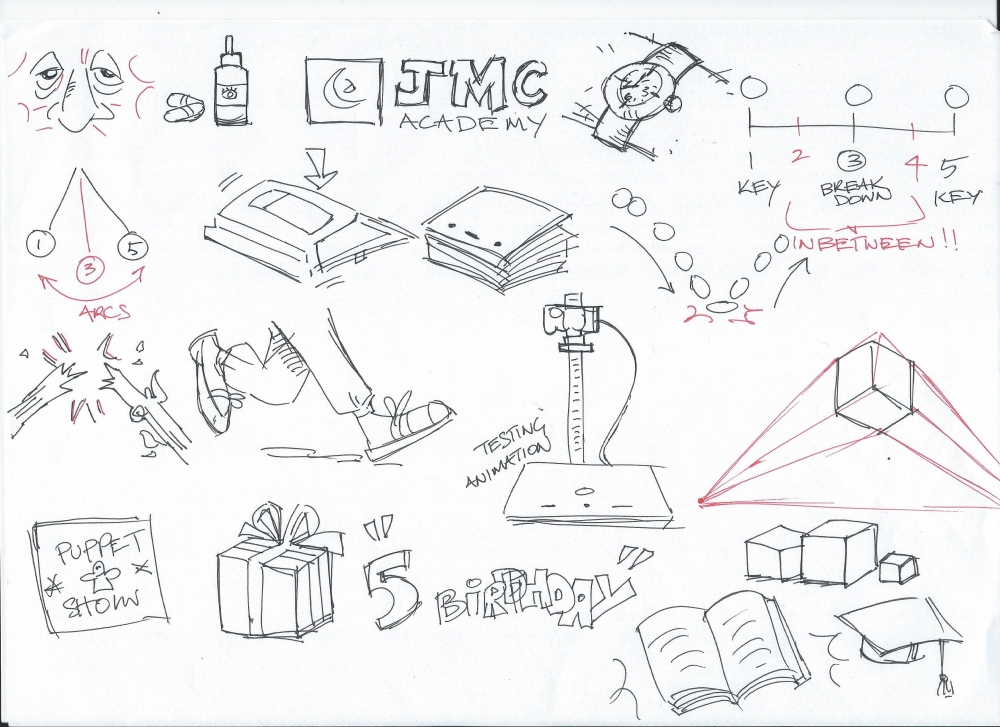 JMC
ACADEMY
1 2 3 4 5
KEY
BREAK
DOWN
KEY
INBETWEEN!!
1
3
5
ARCS
2 5
TESTING
ANIMATION
PUPPET
SHOW
"5 BIRTHDAY"